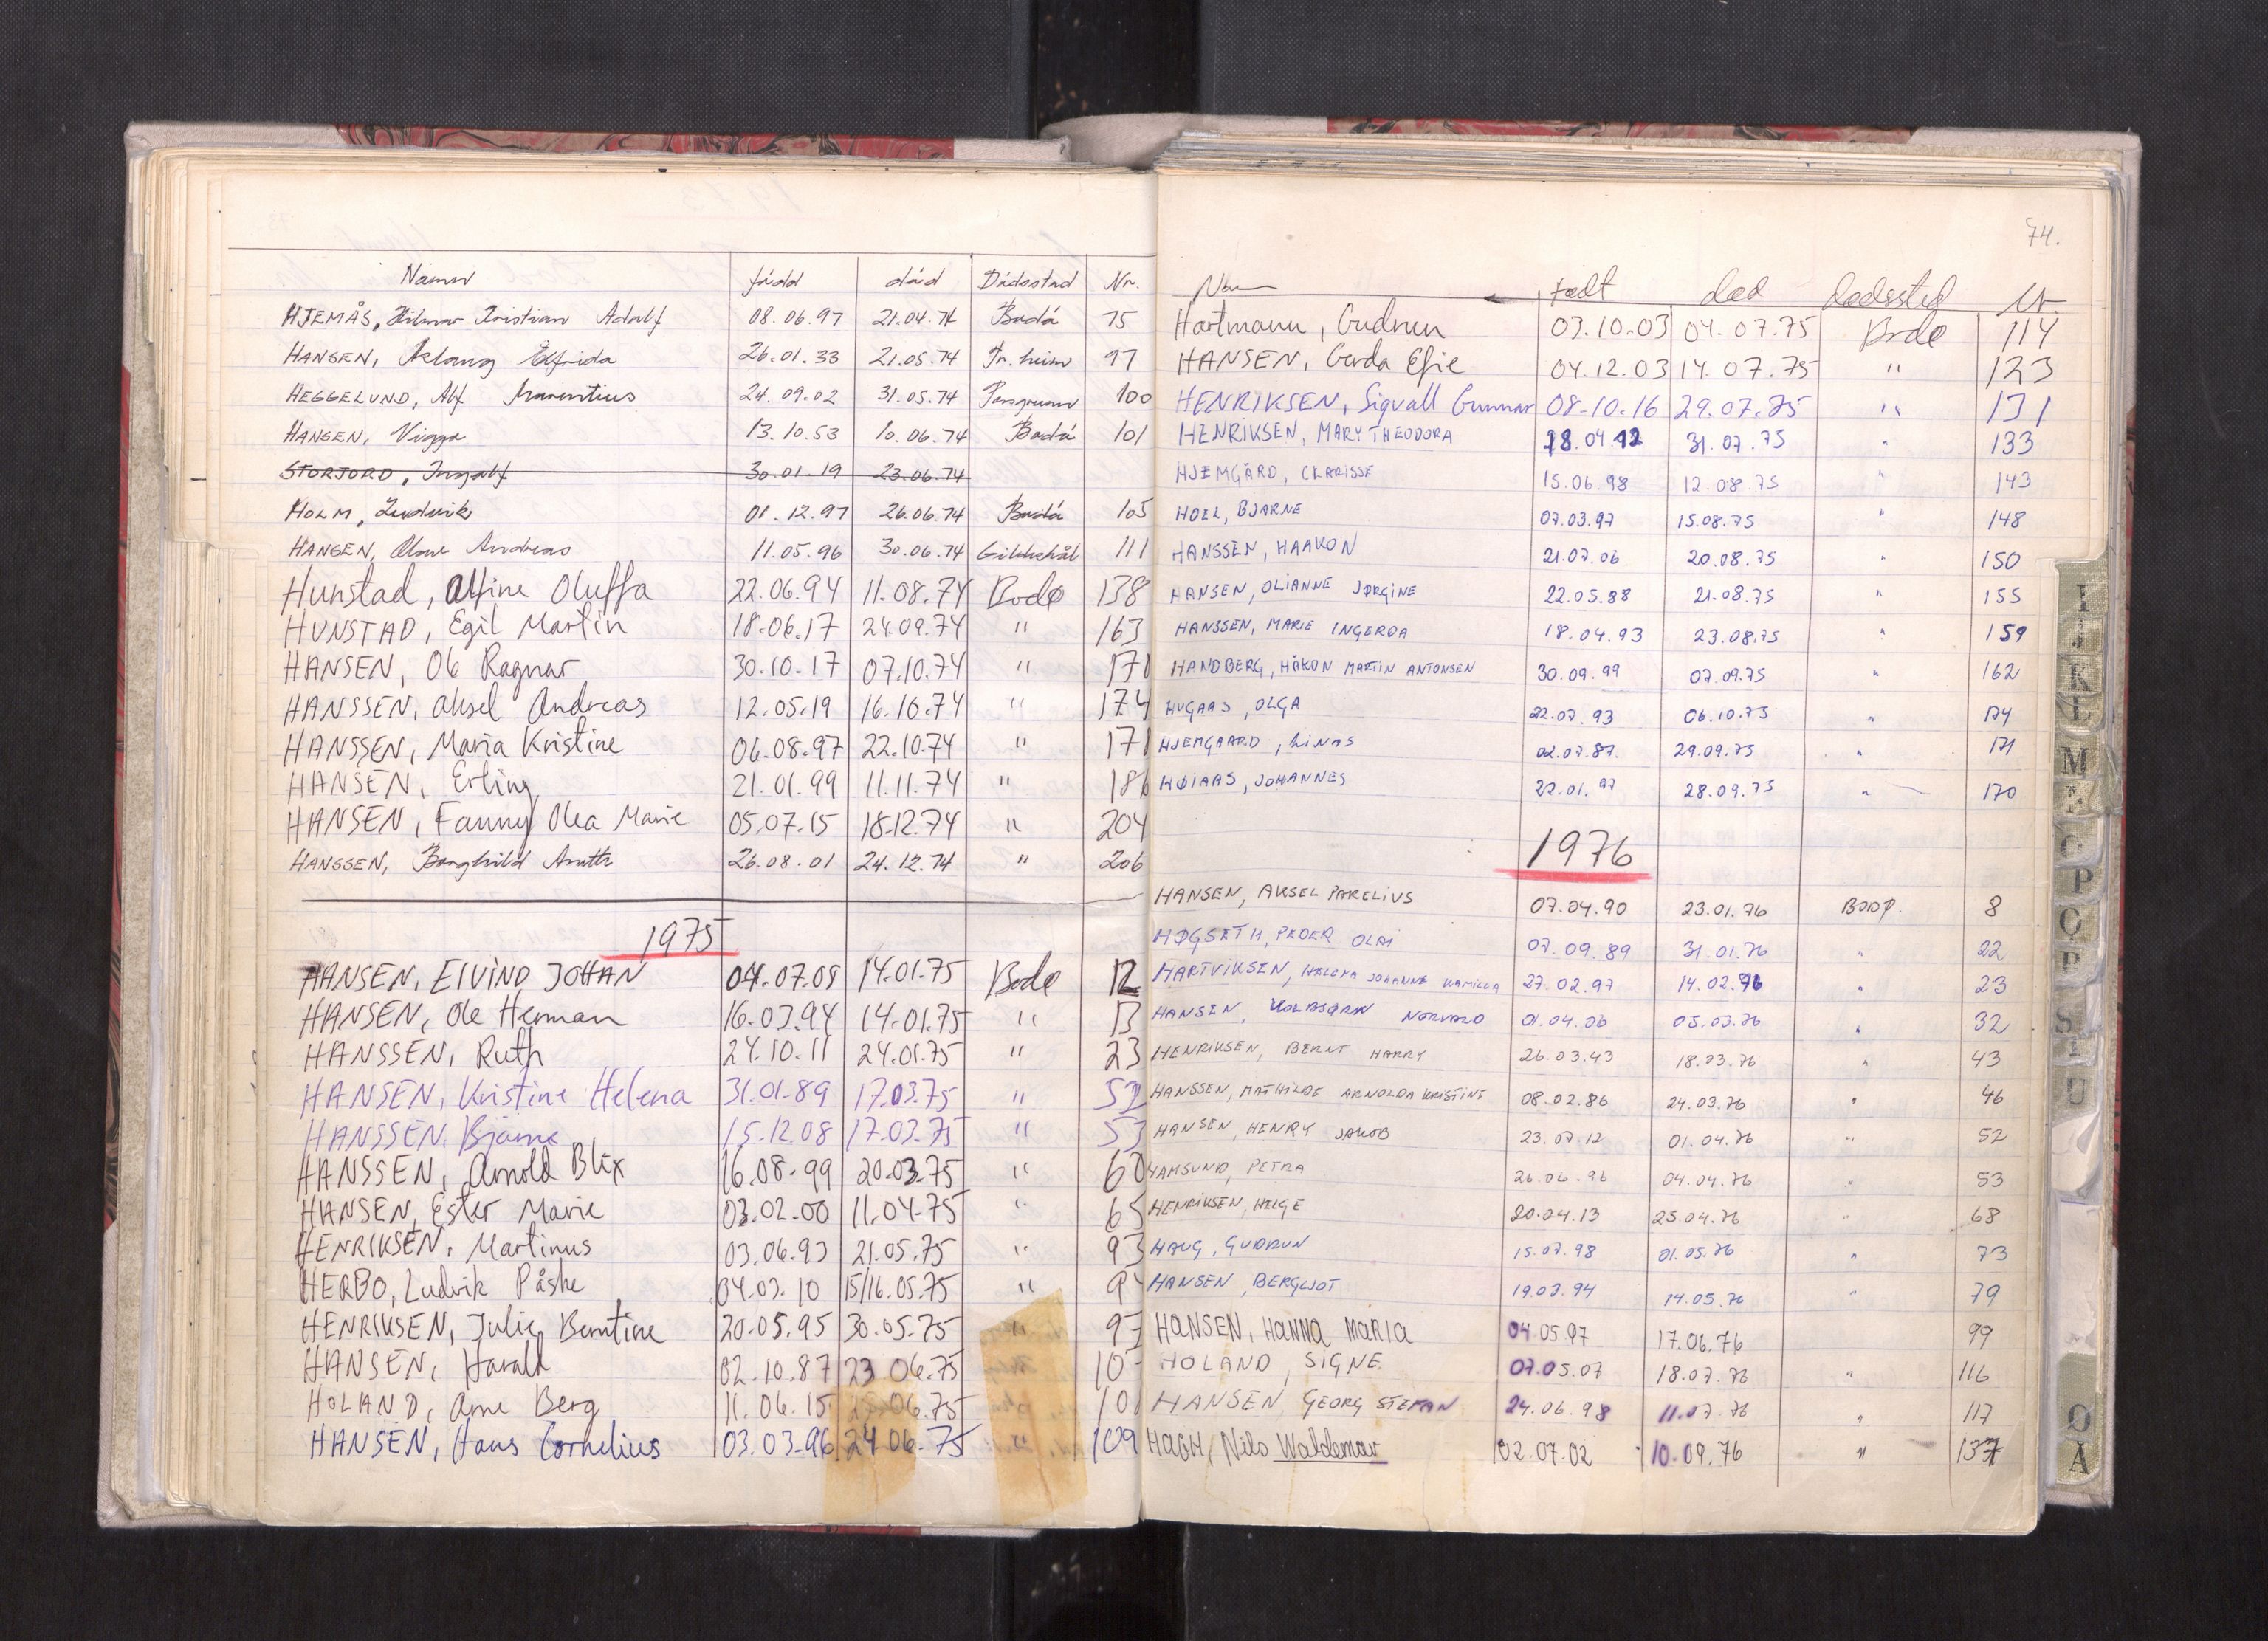 Namn født død Dødsstad Nr.
HJEMÅS, Hilmar Kristian Adolf 08.06.97 21.04.74 Bodø 75
HANSEN, Aslaug Elfrida 26.01.33 21.05.74 Tr.heim 97
HEGGELUND, Alf 24.09.02 31.05.74 Porsgrunn 100
HANSEN, Vigga 13.10.53 10.06.74 Bodø 101
STORJORD, Ingolf 30.01.19 23.06.74
HOLM, Ludvik 01.12.97 26.06.74 Bodø 105
HANSEN, Andreas 11.05.96 30.06.74 Gildeskål 111
Hunstad, Alfine Oluffa 22.06.94 11.08.74 Bodø 138
HUNSTAD, Egil Martin 18.06.17 24.09.74 " 163
HANSEN, Ole Ragnar 30.10.17 07.10.74 "
HANSSEN, Aksel Andreas 12.05.19 16.10.74 " 174
HANSSEN, Maria Kristine 06.08.97 22.10.74 "
HANSEN, Erling 21.01.99 11.11.74 " 186
HANSEN, Fanny Olea Marie 05.07.15 18.12.74 " 204
HANSSEN, Borghild Anuth 26.08.01 24.12.74 " 206
1975
HANSEN, EIVIND JOHAN 04.07.09 14.01.75 Bodø 12
HANSEN, Ole Herman 16.03.94 14.01.75 " 13
HANSSEN, Ruth 24.10.11 24.01.75 " 23
HANSEN, Kristine Helena 31.01.89 17.03.75 " 52
HANSSEN, Bjarne 15.12.08 17.03.75 " 53
HANSSEN, Arnold Blix 16.08.99 20.03.75 " 60
HANSEN, Ester Marie 03.02.00 11.04.75 " 65
HENRIKSEN, Martinus 03.06.93 21.05.75 " 93
HERBO, Ludvik Påske 04.03.10 15/16.05.75 "
HENRIKSEN, Julie Berntine 20.05.95 30.05.75 "
HANSEN, Harald 02.10.87 23 06.75
HOLAND, Arne Berg 11.06.15 06.75
HANSEN, Hans Cornelius 03.03.96 24.06.75 " 109
74.
Navn født død dødssted Nr.
Hartmann, Gudrun 03.10.03 04.07.75 Bodø 114
HANSEN, Gerda Efie 04.12.03 14.07.75 " 123
HENRIKSEN, Sigvall Gunnar 08.10.16 29.07.75 " 131
HENRIKSEN, MARY THEODORA 18.04.12 31.07.75 " 133
HJEMGÅRD, CLARISSE 15.06.98 12.08.75 " 143
HOEL, BJARNE 07.03.97 15.08.75 " 148
HANSSEN, HAAKON 21.07.06 20.08.75 " 150
HANSEN, OLIANNE JØRGINE 22.05.88 21.08.75 " 155
HANSSEN, MARIE INGERDA 18.04.93 23.08.75 " 159
HANDBERG, HÅKON MARTIN ANTONSEN 30.09.99 07.09.75 " 162
HUGAAS, OLGA 22.07.93 06.10.75 " 174
HJEMGAARD, LINAS 02.07.87 29.09.75 " 171
HØIAAS, JOHANNES 27.01.97 28.09.75 " 170
1976
HANSEN, AKSEL PARELIUS 07.04.90 23.01.76 BODØ. 8
HØGSETH, PEDER OLAI 07.09.89 31.01.76 " 22
HARTVIKSEN, HELGA JOHANNE KAMILLA 27.02.97 14.02.76 " 23
HANSEN, KOLBJØRN NORVALD 01.04.06 05.03.76 " 32
HENRIKSEN, BERNT HARRY 26.03.43 18.03.76 " 43
HANSSEN, MATHILDE ARNOLDA KRISTINE 08.02.86 24.03.76 " 46
HANSEN, HENRY JAKOB 23.07.12 01.04.76 " 52
HAMSUND, PETRA 26.06.96 04.04.76 " 53
HENRIKSEN, HELGE 20.04.13 25.04.76 " 68
HAUG, GUDRUN 15.07.98 01.05.76 " 73
HANSEN, BERGLJOT 19.03.94 14.05.76 " 79
HANSEN, HANNA MARIA 04.05.97 17.06.76 99
HOLAND, SIGNE 07.05.07 18.07.76 " 116
HANSEN, GEORG STEFAN 24.06.98 11.07.76 " 117
HAGH, Nils Waldemar 02.07.02 10.09.76 " 137
I
K
L
M
O
P
Q
R
S
U
Ø
Å